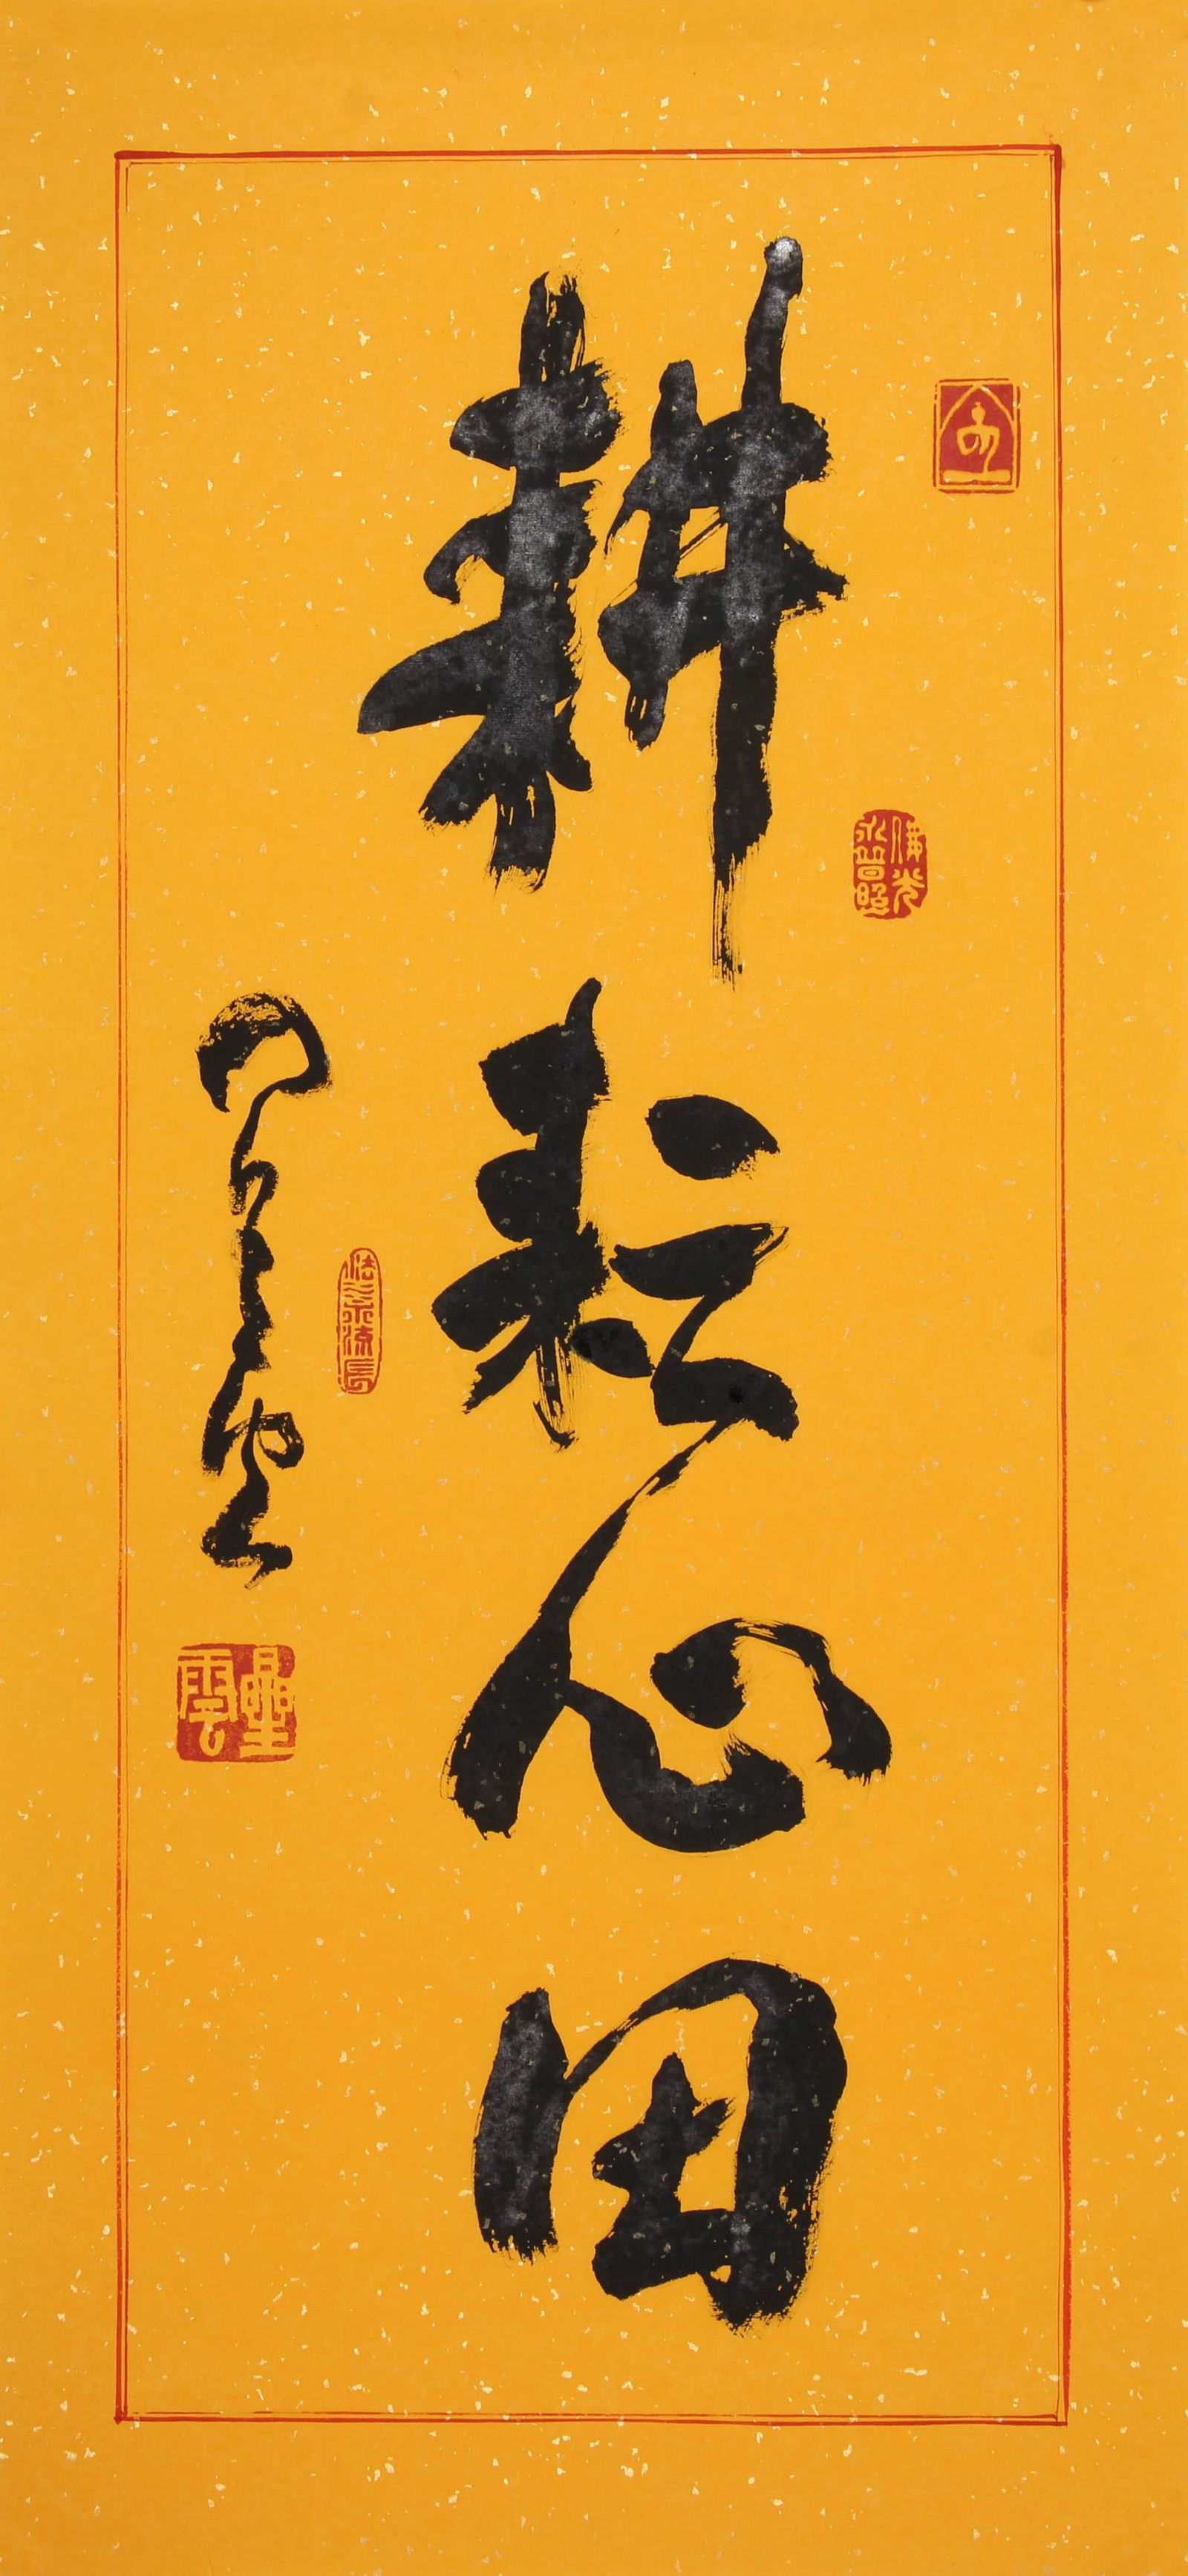 耕耘心田
佛光
永普照
法水流長
星雲
星雲